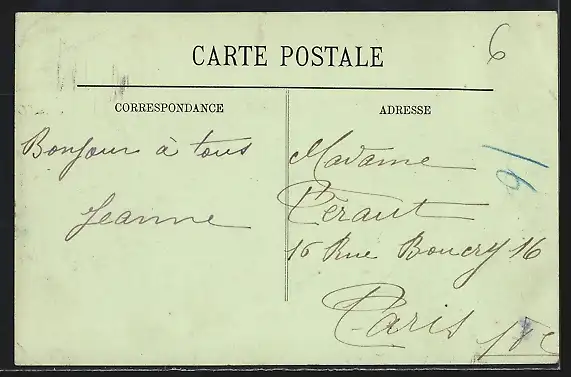 6
CARTE POSTALE
CORRESPONDANCE
ADRESSE
Bonjour à tous
Jeanne
Madame
Péraut
16 Rue Boucry 16
Paris